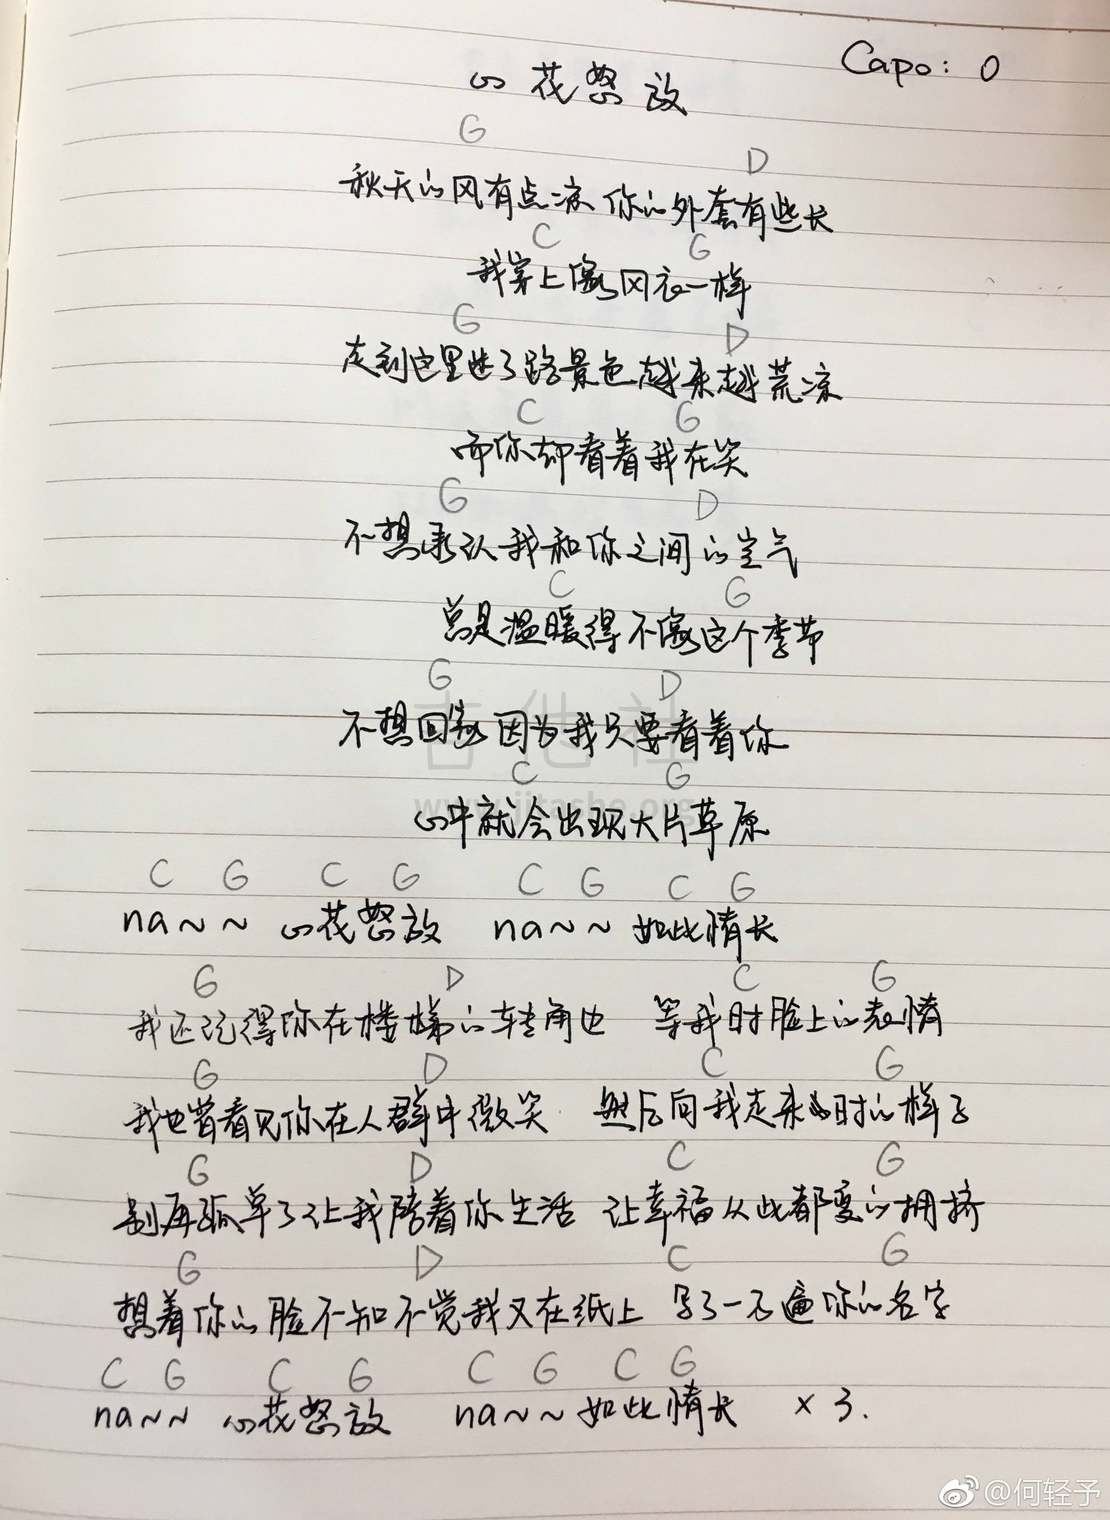 Capo: 0
心花怒放
G D
秋天的风有点凉 你的外套有些长
C G
我穿上像风衣一样
G D
走到这里迷了路景色越来越荒凉
C G
而你却看着我在笑
G D
不想承认我和你之间的空气
C G
总是温暖得不像这个季节
G D
不想回家因为我只要看着你
C G
心中就会出现大片草原
C G C G C G C G
na~~ 心花怒放 na~~ 如此情长
G D C G
我还记得你在楼梯的转角边 等我时脸上的表情
G D C G
我也曾看见你在人群中微笑 然后向我走来时的样子
G D C G
别再孤单了让我陪着你生活 让幸福从此都变的拥挤
G D C G
想着你的脸不知不觉我又在纸上 写了一百遍你的名字
C G C G C G C G
na~~ 心花怒放 na~~ 如此情长 ×3.
吉他社
www.jitashe.org
@何轻予